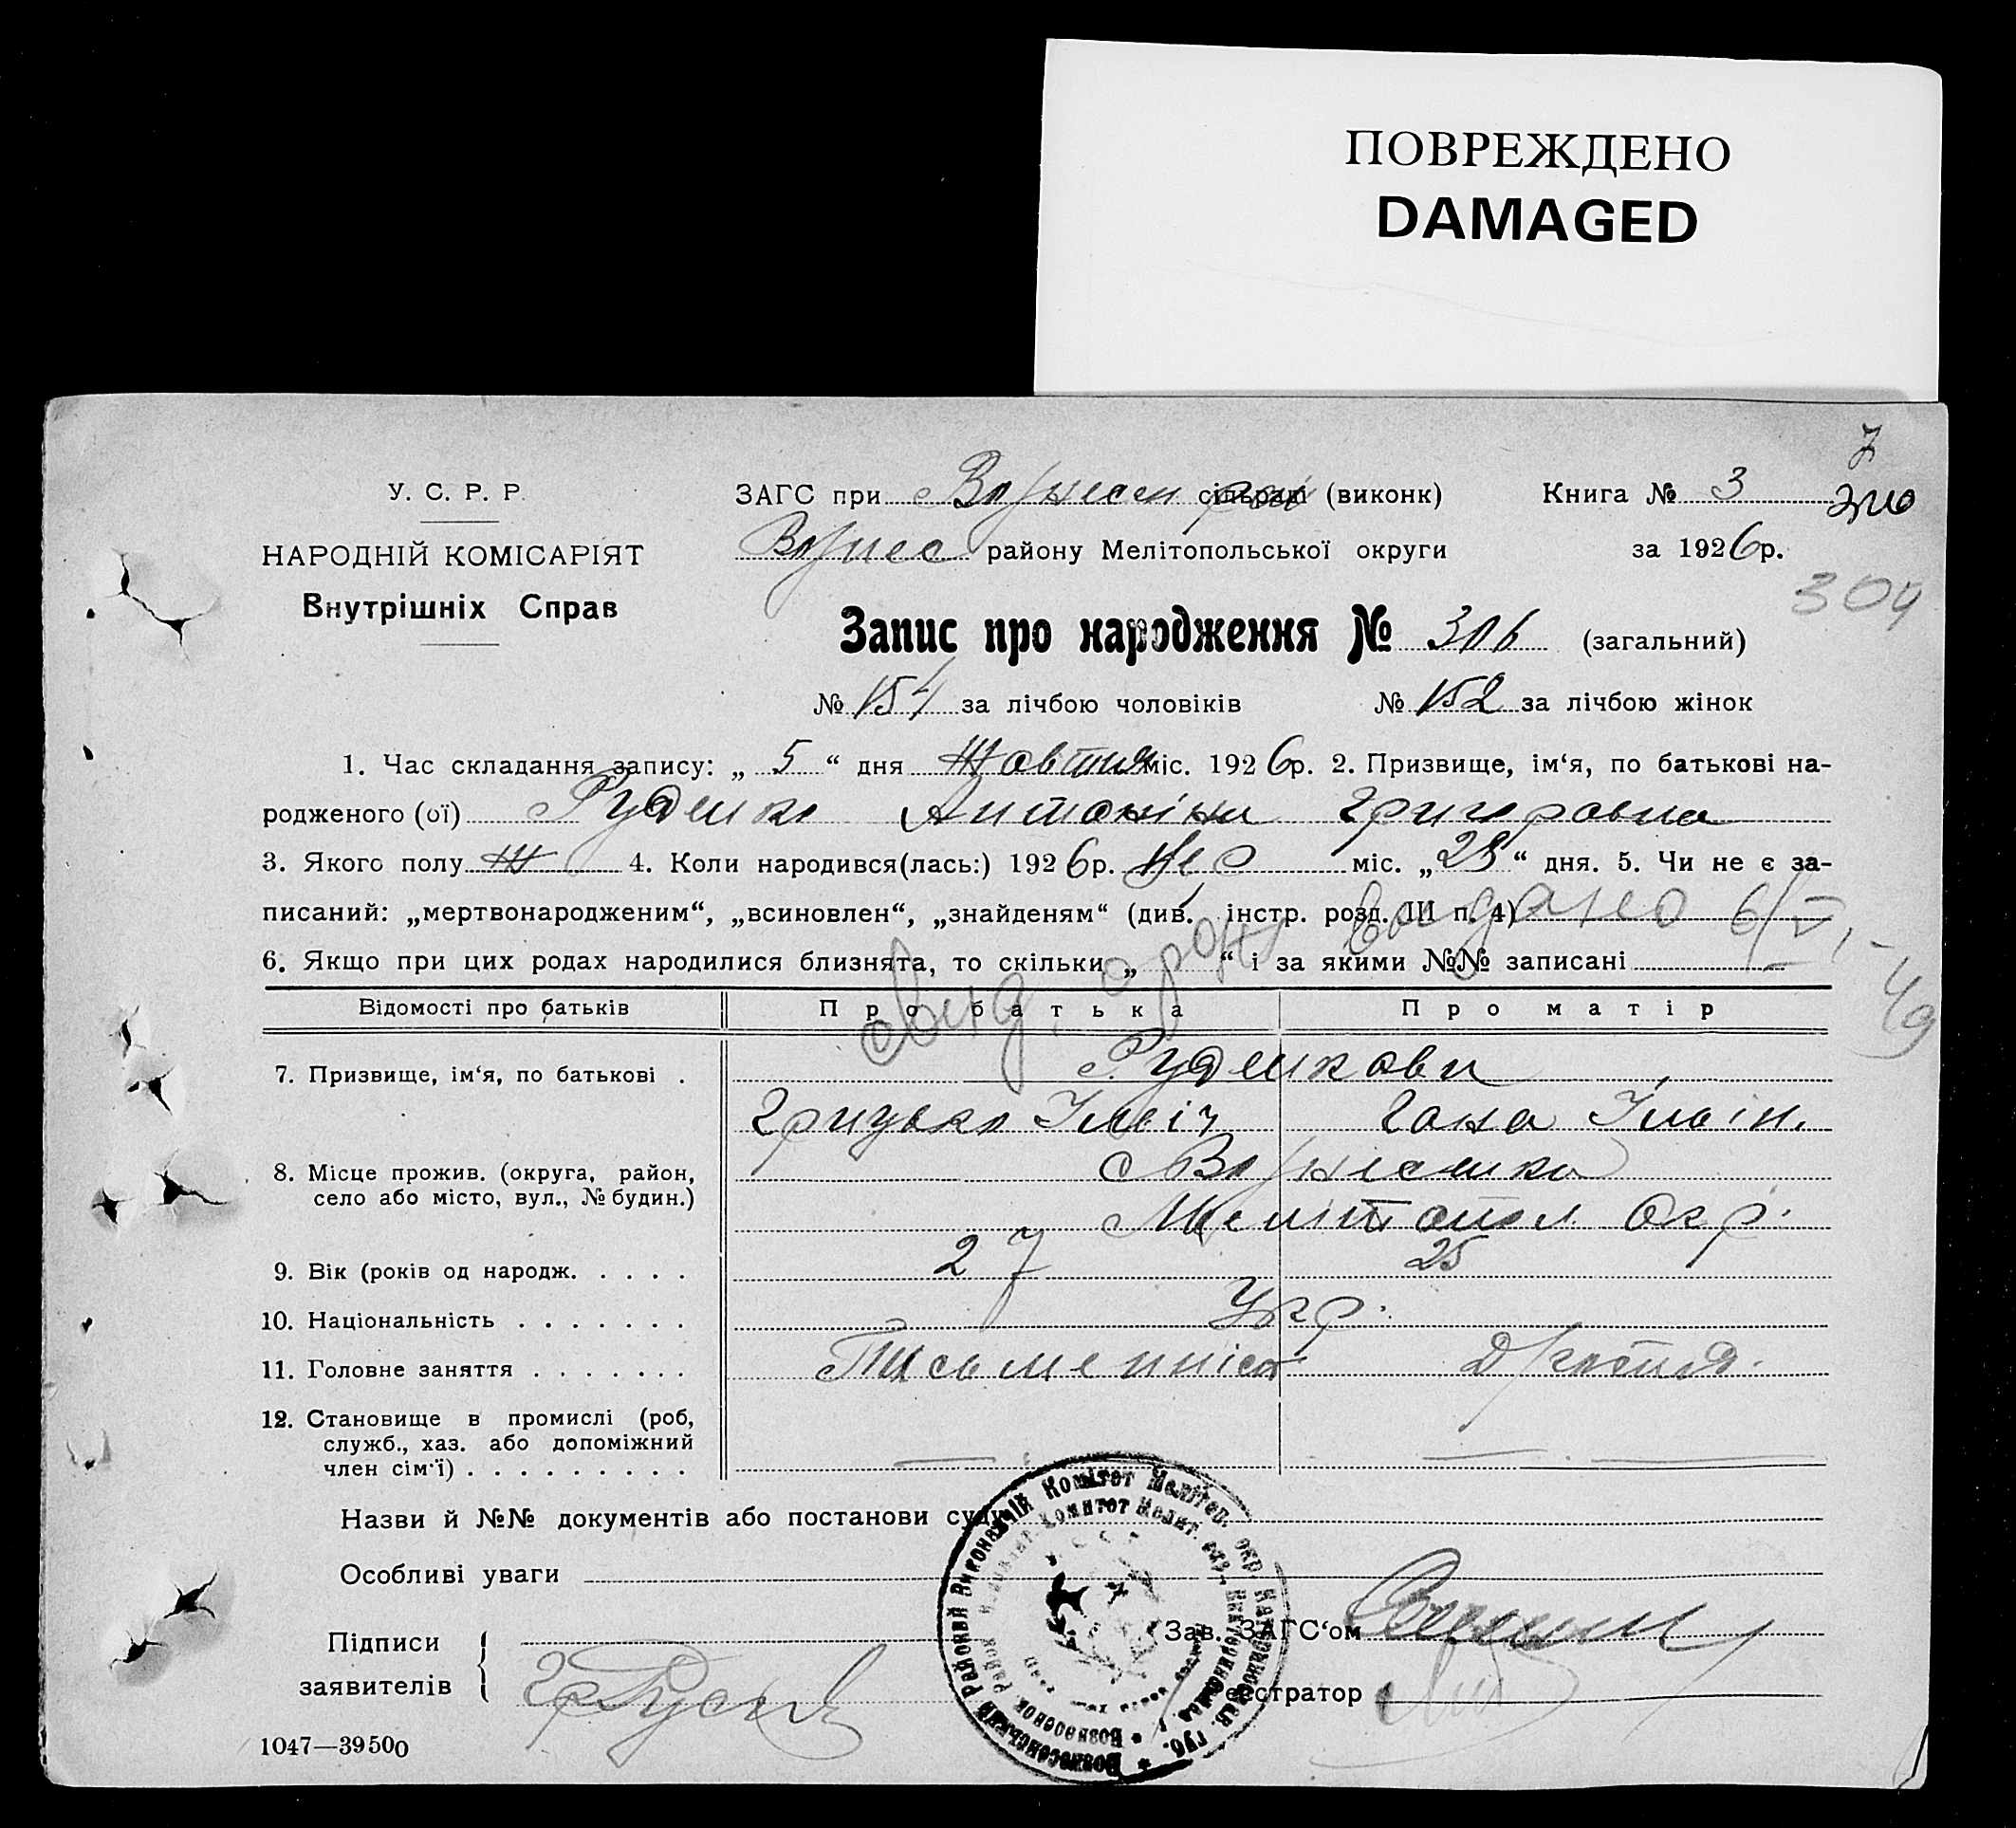 ПОВРЕЖДЕНО
DAMAGED
7
У. С. Р. Р.
ЗАГС при Вознесен рай сільраді (виконк)
Книга № 3
НАРОДНІЙ КОМІСАРІЯТ
Вознес району Мелітопольської округи
за 1926р.
Внутрішніх Справ
304
Запис про народження № 306 (загальний)
№ 154 за лічбою чоловіків № 152 за лічбою жінок
1. Час складання запису: „ 5 “ дня Жовтня міс. 1926р. 2. Призвище, ім‘я, по батькові на-
родженого (ої) Руденко Антоніна Григоровна
3. Якого полу Ж 4. Коли народився(лась:) 1926р. Вер міс. „28“ дня. 5. Чи не є за-
писаний: „мертвонародженим“, „всиновлен“, „знайденям“ (див. інстр. розд. III п. 4)
выдано 6/VI-49
6. Якщо при цих родах народилися близнята, то скільки „ “ і за якими №№ записані
Свид. о рожд
Відомості про батьків
Про батька
Про матір
7. Призвище, ім‘я, по батькові .
Руденкови
Грицько Ілліч
Гана Ілвін.
8. Місце прожив. (округа, район,
село або місто, вул., № будин.)
с Вознесенка
Мелітопол. Окр.
9. Вік (років од народж. . . . .
27
25
10. Національність . . . . . . .
Укр.
11. Головне заняття . . . . . . .
12. Становище в промислі (роб,
служб., хаз. або допоміжний
член сім‘ї) . . . . . . . . .
Назви й №№ документів або постанови суду
Особливі уваги
Зав. ЗАГС‘ом
Підписи
заявителів
Реєстратор
Вознесенський Районвий Виконавчій Комітет Меліто. окр. Катеринослав. губ.
1047—39500